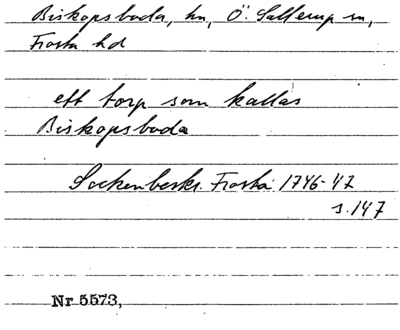 Biskopsboda, hn, Ö. Sallerup sn,
Frosta hd
ett torp som kallas
Biskopsboda
Sockenbeskr. Frosta 1746-47
s. 147
Nr 5573,